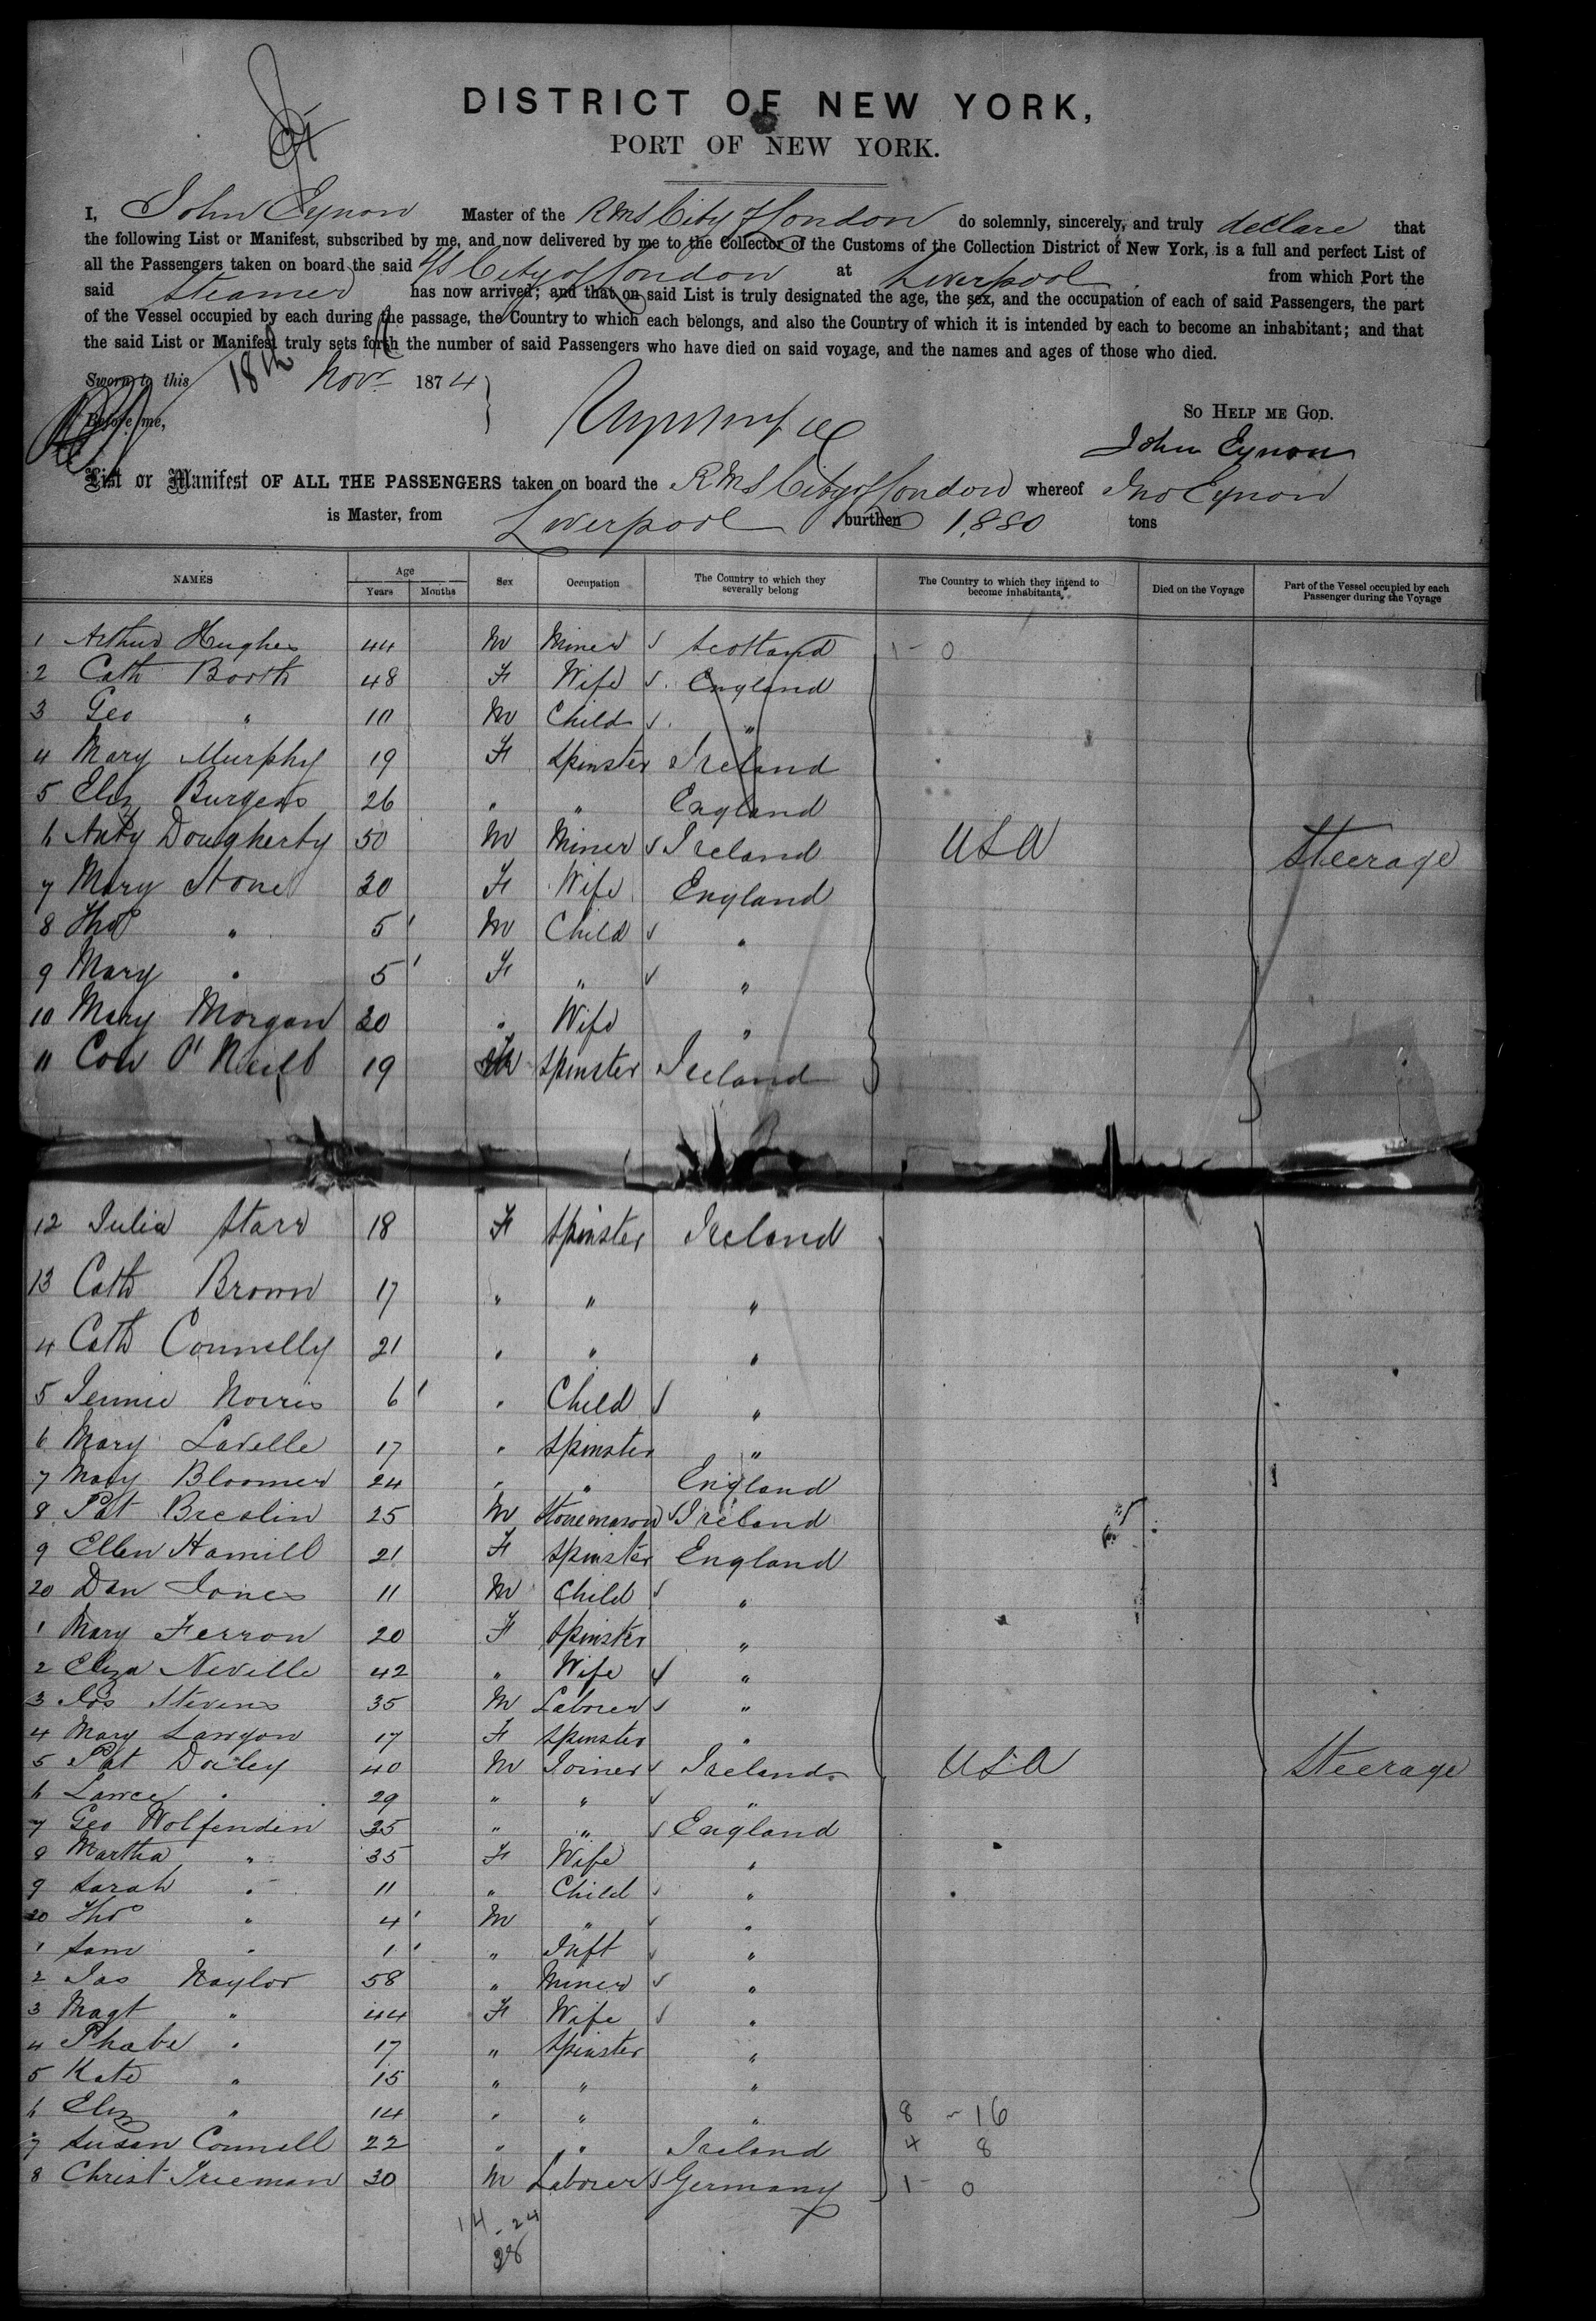 DISTRICT OF NEW YORK,
PORT OF NEW YORK.
I, John Eynon Master of the RMS City of London do solemnly, sincerely, and truly declare that
the following List or Manifest, subscribed by me, and now delivered by me to the Collector of the Customs of the Collection District of New York, is a full and perfect List of
all the Passengers taken on board the said S/S City of London at Liverpool from which Port the
said Steamer has now arrived; and that on said List is truly designated the age, the sex, and the occupation of each of said Passengers, the part
of the Vessel occupied by each during the passage, the Country to which each belongs, and also the Country of which it is intended by each to become an inhabitant; and that
the said List or Manifest truly sets forth the number of said Passengers who have died on said voyage, and the names and ages of those who died.
Sworn to this 18th Novr 1874
So Help me God.
Before me,
John Eynon
List or Manifest OF ALL THE PASSENGERS taken on board the RMS City of London whereof Jno Eynon
is Master, from Liverpool burthen 1,880 tons
NAMES Age Years Months Sex Occupation The Country to which they severally belong The Country to which they intend to become inhabitants Died on the Voyage Part of the Vessel occupied by each Passenger during the Voyage
1 Arthur Hughes 44 M Miner Scotland 1 - 0
2 Cath Booth 48 F Wife England
3 Geo " 10 M Child "
4 Mary Murphy 19 F Spinster Ireland
5 Eliz Burgess 26 " " England
6 Anty Dougherty 50 M Miner Ireland USA Steerage
7 Mary Stone 30 F Wife England
8 Thos " 5 M Child "
9 Mary " 5 F " "
10 Mary Morgan 30 " Wife "
11 O'Neill 19 F Spinster Ireland
12 Julia Starr 18 F Spinster Ireland
13 Cath Brown 17 " " "
4 Cath Connelly 21 " " "
5 Jennie Norris 6 " Child "
6 Mary Lavelle 17 " Spinster "
7 Mary Bloomer 24 " " England
8 Pat Breslin 25 M Stonemason Ireland
9 Ellen Hamill 21 F Spinster England
20 Dan Jones 11 M Child "
1 Mary Ferron 20 F Spinster "
2 Eliza Neville 42 " Wife "
3 Jos Stevens 35 M Laborer "
4 Mary Lawson 17 F Spinster "
5 Pat Daley 40 M Joiner Ireland USA Steerage
6 Lawce " 29 " " "
7 Geo Wolfenden 35 " " England
8 Martha " 35 F Wife "
9 Sarah " 11 " Child "
30 Thos " 4 M " "
1 Sam " 1 " Inft "
2 Jas Naylor 58 " Miner "
3 Magt " 44 F Wife "
4 Phabe " 17 " Spinster "
5 Kate " 15 " " "
6 Eliz " 14 " " " 8 - 16
7 Susan Connell 22 " " Ireland 4 8
8 Christ Trieman 30 M Laborer Germany 1 - 0
14 - 24
38